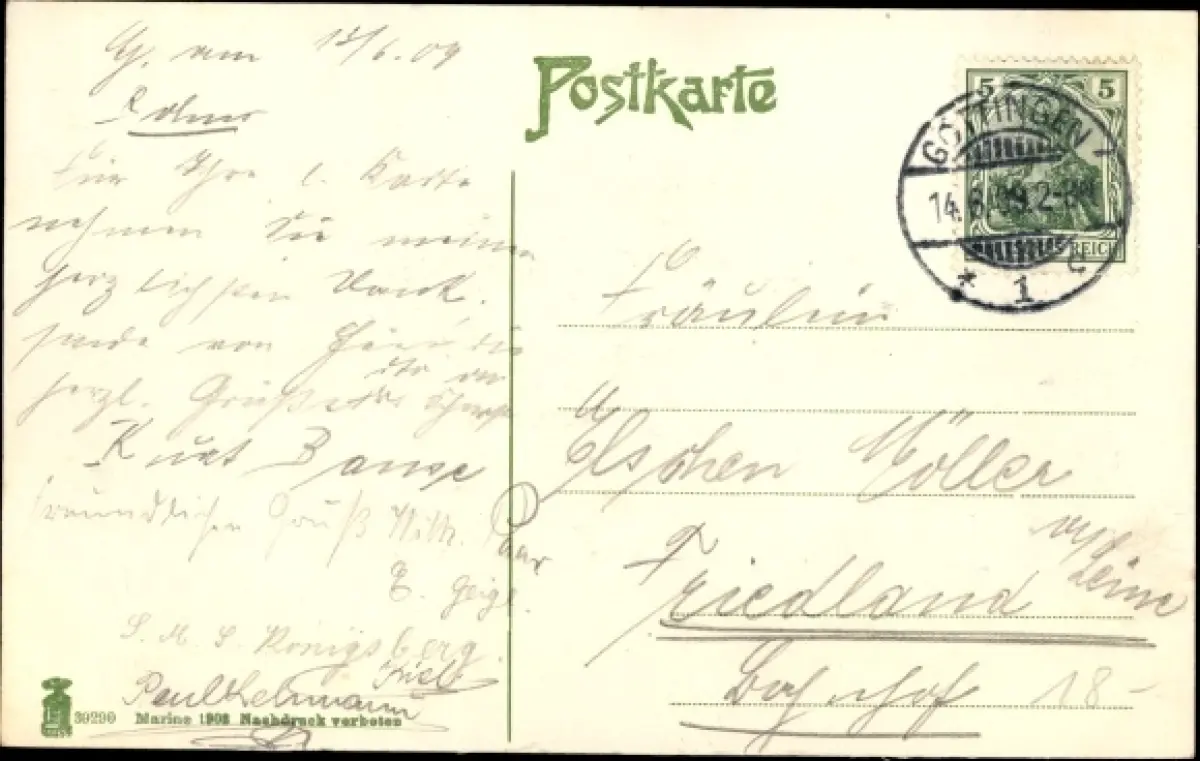 G. vom 13/6.09
Für Ihre l. Karte
nehmen Sie meinen
herzlichsten Dank.
von die
herzl. Grüße
Kurt Banse
freundlichen Gruß Wilh.
E. Geigl.
S. M. S. Königsberg
Kiel
Paul Lehmann
39290 Marine 1908 Nachdruck verboten
Postkarte
5 5
REICH
GÖTTINGEN
14.6.09.2-3N
* 1 c
Fräulein
Elschen Möller
Friedland
Leine
Bahnhof
18-